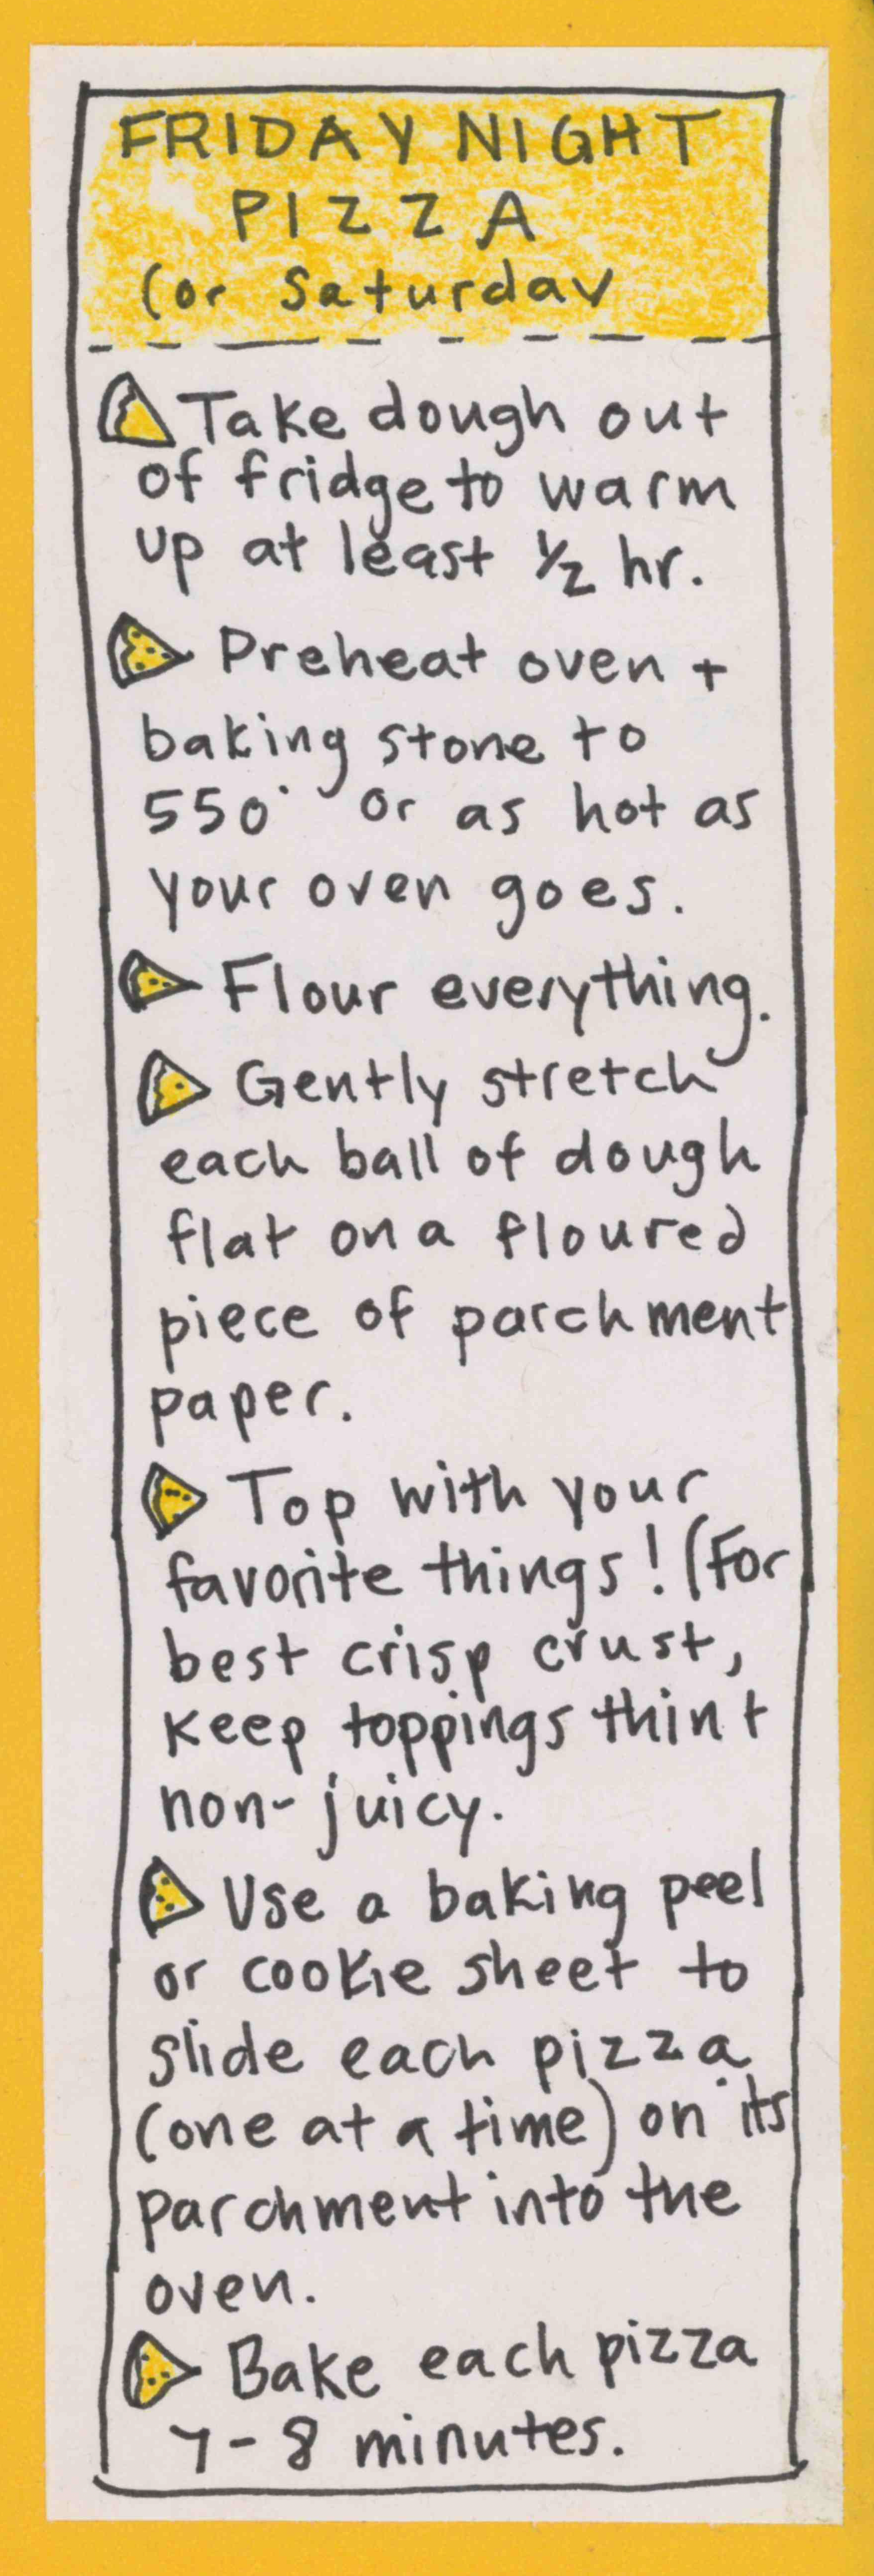 FRIDAY NIGHT
PIZZA
(or Saturday
Take dough out
of fridge to warm
up at least ½ hr.
Preheat oven +
baking stone to
550° or as hot as
your oven goes.
Flour everything.
Gently stretch
each ball of dough
flat on a floured
piece of parchment
paper.
Top with your
favorite things! (For
best crisp crust,
keep toppings thin +
non-juicy.
Use a baking peel
or cookie sheet to
slide each pizza
(one at a time) on its
parchment into the
oven.
Bake each pizza
7-8 minutes.